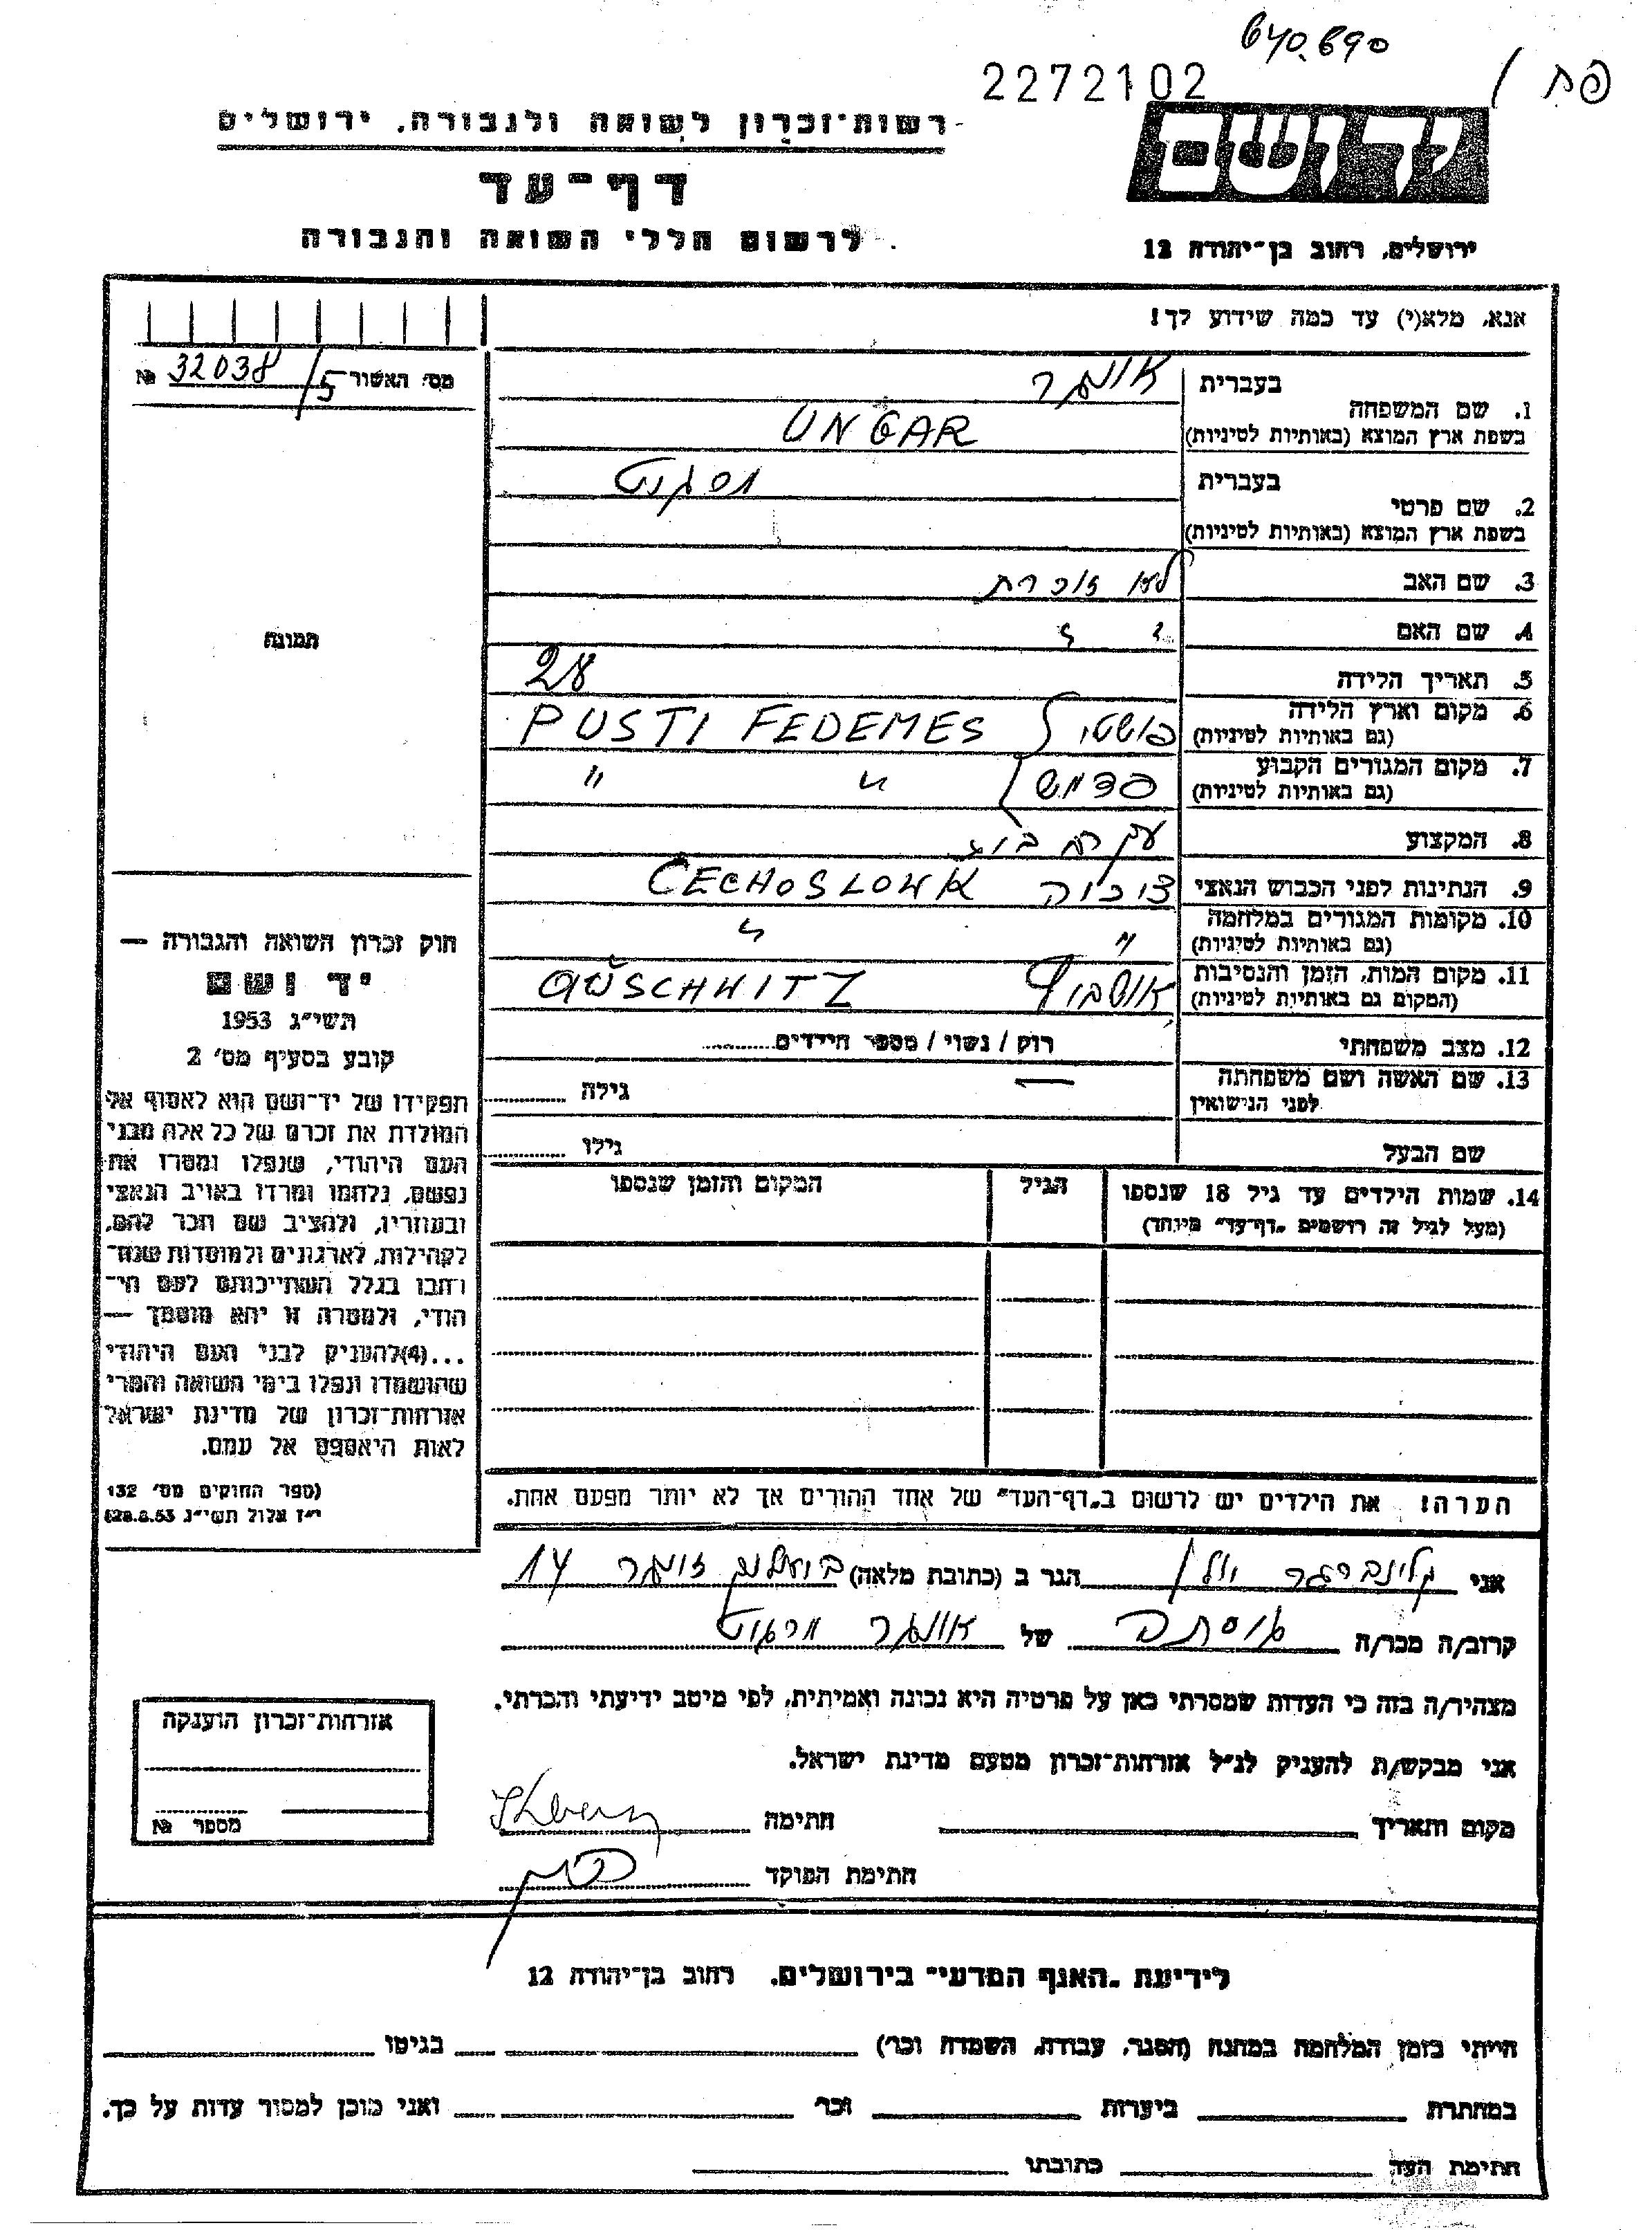 640.690
2272102
פת
רשות־זכרון לשואה ולגבורה, ירושלים
יד ושם
דף־עד
לרשום חללי השואה והגבורה
ירושלים, רחוב בן־יהודה 12
אנא, מלא(י) עד כמה שידוע לך!
מס׳ האשור 5/ 32038 №
1. שם המשפחה
בעברית אונגר
בשפת ארץ המוצא (באותיות לטיניות) UNGAR
2. שם פרטי
בעברית
בשפת ארץ המוצא (באותיות לטיניות)
3. שם האב לא זוכרת
4. שם האם " "
5. תאריך הלידה 28
6. מקום וארץ הלידה
(גם באותיות לטיניות) פושטי PUSTI FEDEMES
7. מקום המגורים הקבוע
(גם באותיות לטיניות) פדמש " "
8. המקצוע עקרת בית
9. הנתינות לפני הכבוש הנאצי צ'כיה CECHOSLOWK
10. מקומות המגורים במלחמה
(גם באותיות לטיניות) " "
11. מקום המות, הזמן והנסיבות
(המקום גם באותיות לטיניות) אושביץ AUSCHWITZ
12. מצב משפחתי רוק / נשוי / מספר הילדים..........
13. שם האשה ושם משפחתה
לפני הנישואין — גילה ..........
שם הבעל גילו ..........
14. שמות הילדים עד גיל 18 שנספו
(מעל לגיל זה רושמים „דף־עד" מיוחד)
הגיל
המקום והזמן שנספו
הערה! את הילדים יש לרשום ב„דף־העד" של אחד ההורים אך לא יותר מפעם אחת.
תמונה
חוק זכרון השואה והגבורה —
יד ושם
תשי״ג 1953
קובע בסעיף מס׳ 2
תפקידו של יד־ושם הוא לאסוף אל
המולדת את זכרם של כל אלה מבני
העם היהודי, שנפלו ומסרו את
נפשם, נלחמו ומרדו באויב הנאצי
ובעוזריו, ולהציב שם וזכר להם,
לקהילות, לארגונים ולמוסדות שנח־
רחבו בגלל השתייכותם לעם הי־
הודי, ולמטרה זו יהא מוסמך —
...(4)להעניק לבני העם היהודי
שהושמדו ונפלו בימי השואה והמרי
אזרחות־זכרון של מדינת ישראל
לאות היאספם אל עמם.
(ספר החוקים מס׳ 132
י״ז אלול תשי״ג 28.8.53)
אני קלינברגר הגר ב (כתובת מלאה) 14
קרוב/ה מכר/ה של אונגר
מצהיר/ה בזה כי העדות שמסרתי כאן על פרטיה היא נכונה ואמיתית, לפי מיטב ידיעתי והכרתי.
אני מבקש/ת להעניק לנ״ל אזרחות־זכרון מטעם מדינת ישראל.
מקום ותאריך חתימה
חתימת הפוקד
אזרחות־זכרון הוענקה
מספר №
לידיעת „האגף המדעי" בירושלים, רחוב בן־יהודה 12
הייתי בזמן המלחמה במחנה (הסגר, עבודה, השמדה וכר׳) בגיטו
במחתרת ביערות וכר׳ ואני מוכן למסור עדות על כך.
חתימת העד כתובתו